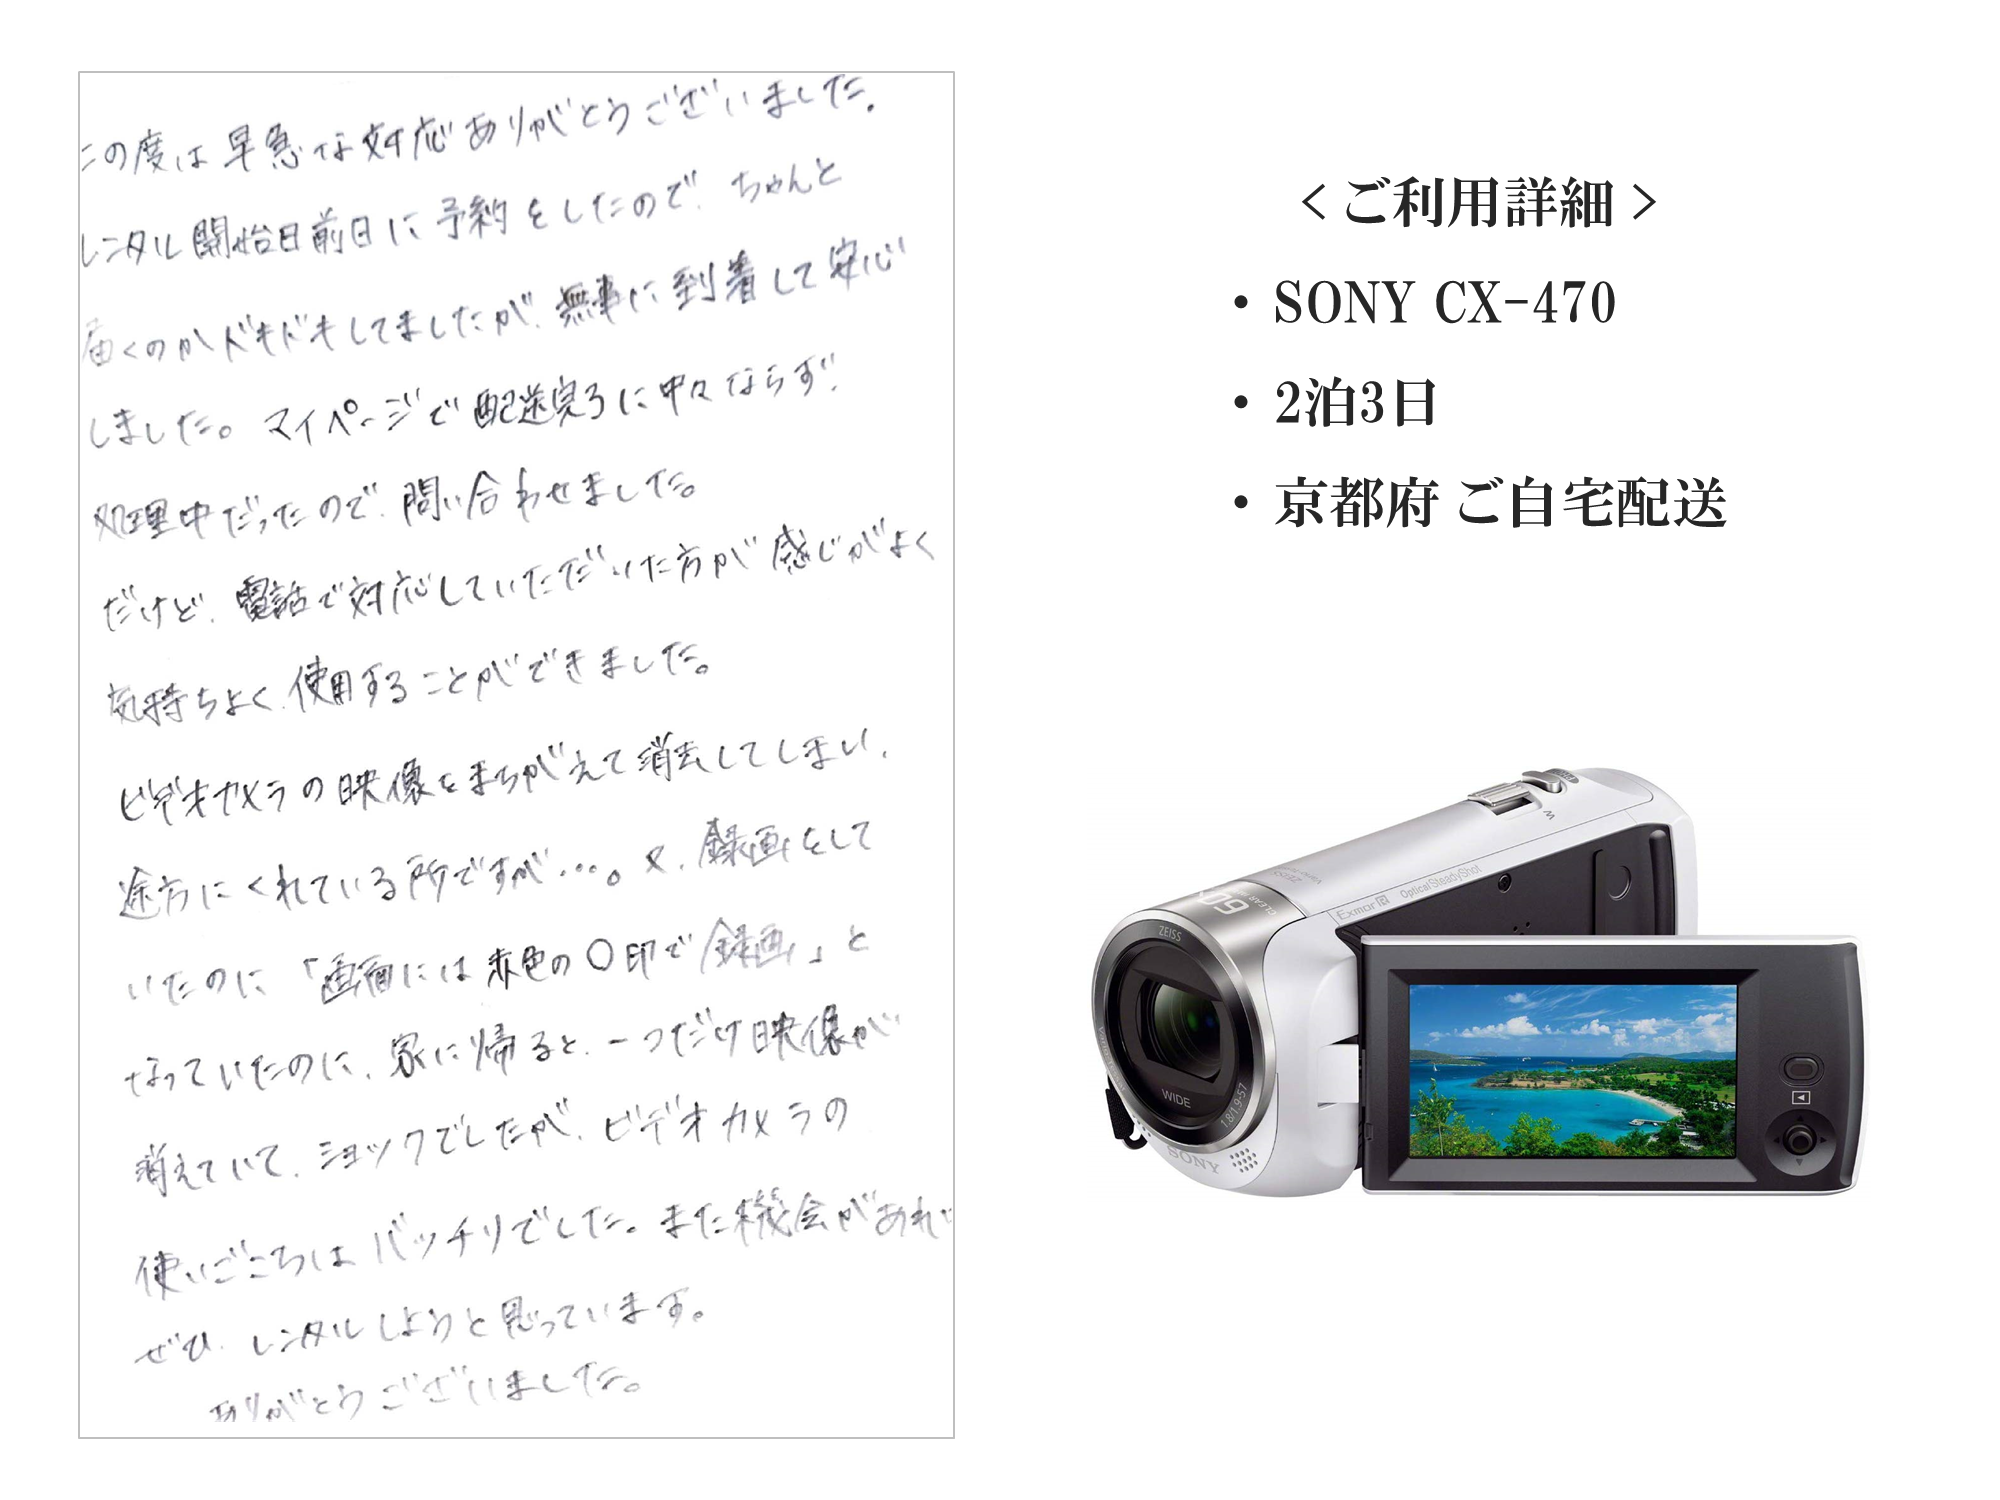 この度は早急な対応ありがとうございました。
レンタル開始日前日に予約をしたので、ちゃんと
届くのかドキドキしてましたが、無事に到着して安心
しました。マイページで配送完了に中々ならず、
処理中だったので、問い合わせました。
だけど、電話で対応していただいた方が感じがよく
気持ちよく、使用することができました。
ビデオカメラの映像をまちがえて消去してしまい、
途方にくれている所ですが…。又、録画をして
いたのに「画面には赤色の〇印で録画」と
なっていたのに、家に帰ると、一つだけ映像が
消えていて、ショックでしたが、ビデオカメラの
使いごこちはバッチリでした。また機会があれば
ぜひ、レンタルしようと思っています。
ありがとうございました。
<ご利用詳細>
・SONY CX-470
・2泊3日
・京都府 ご自宅配送
W
ZEISS
60x
CLEAR
Exmor R
Optical SteadyShot
ZEISS
WIDE
1.8/1.9-57
SONY